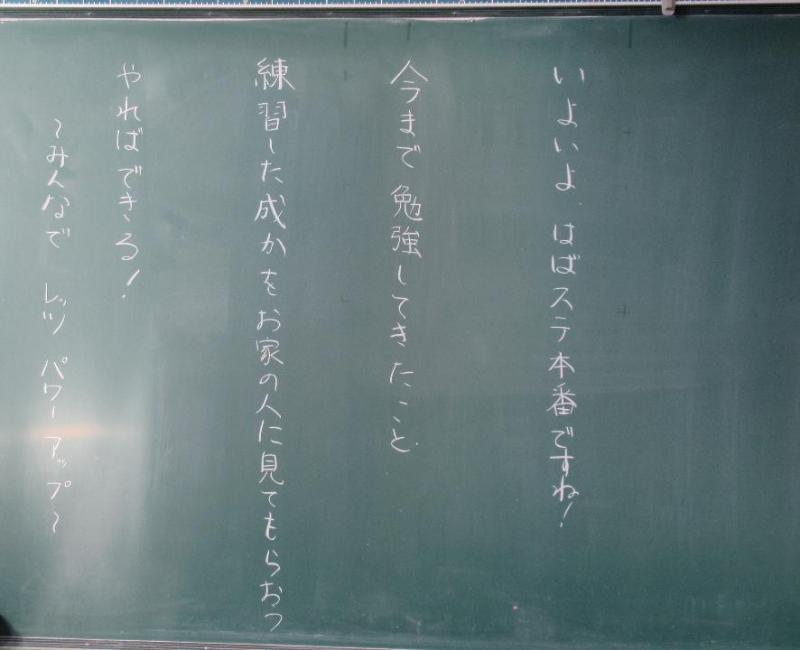 いよいよ はばステ本番ですね!
今まで勉強してきたこと
練習した成かをお家の人に見てもらおっ
やればできる!
~みんなで レッツ パワーアップ~